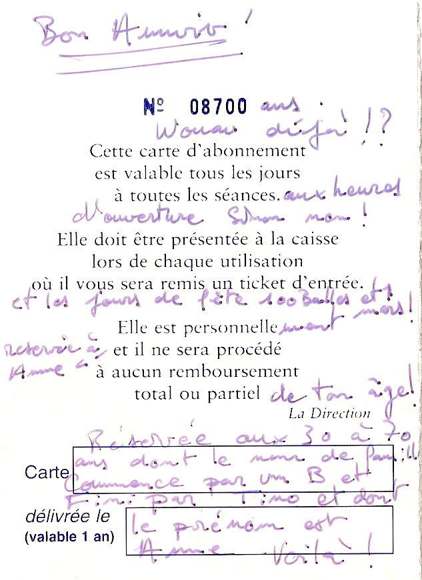 Bon Anniv !
Nº 08700 ans
Wouau déjà !?
Cette carte d'abonnement
est valable tous les jours
à toutes les séances. aux heures
d'ouverture sinon non !
Elle doit être présentée à la caisse
lors de chaque utilisation
où il vous sera remis un ticket d'entrée.
et les jours de fête 100 Balles et
Elle est personnellement mars !
réservée à et il ne sera procédé
Anne à aucun remboursement
total ou partiel de ton âge !
La Direction
Réservée aux 30 à 70
Carte ans dont le nom de famill
Commence par un B et
Fini par Tino et dont
délivrée le le prénom est
(valable 1 an) Anne Voilà !